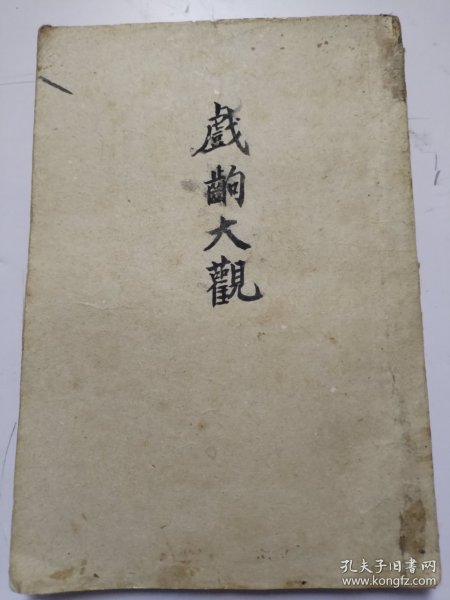 戲齣大觀
孔夫子旧书网
www.kongfz.com